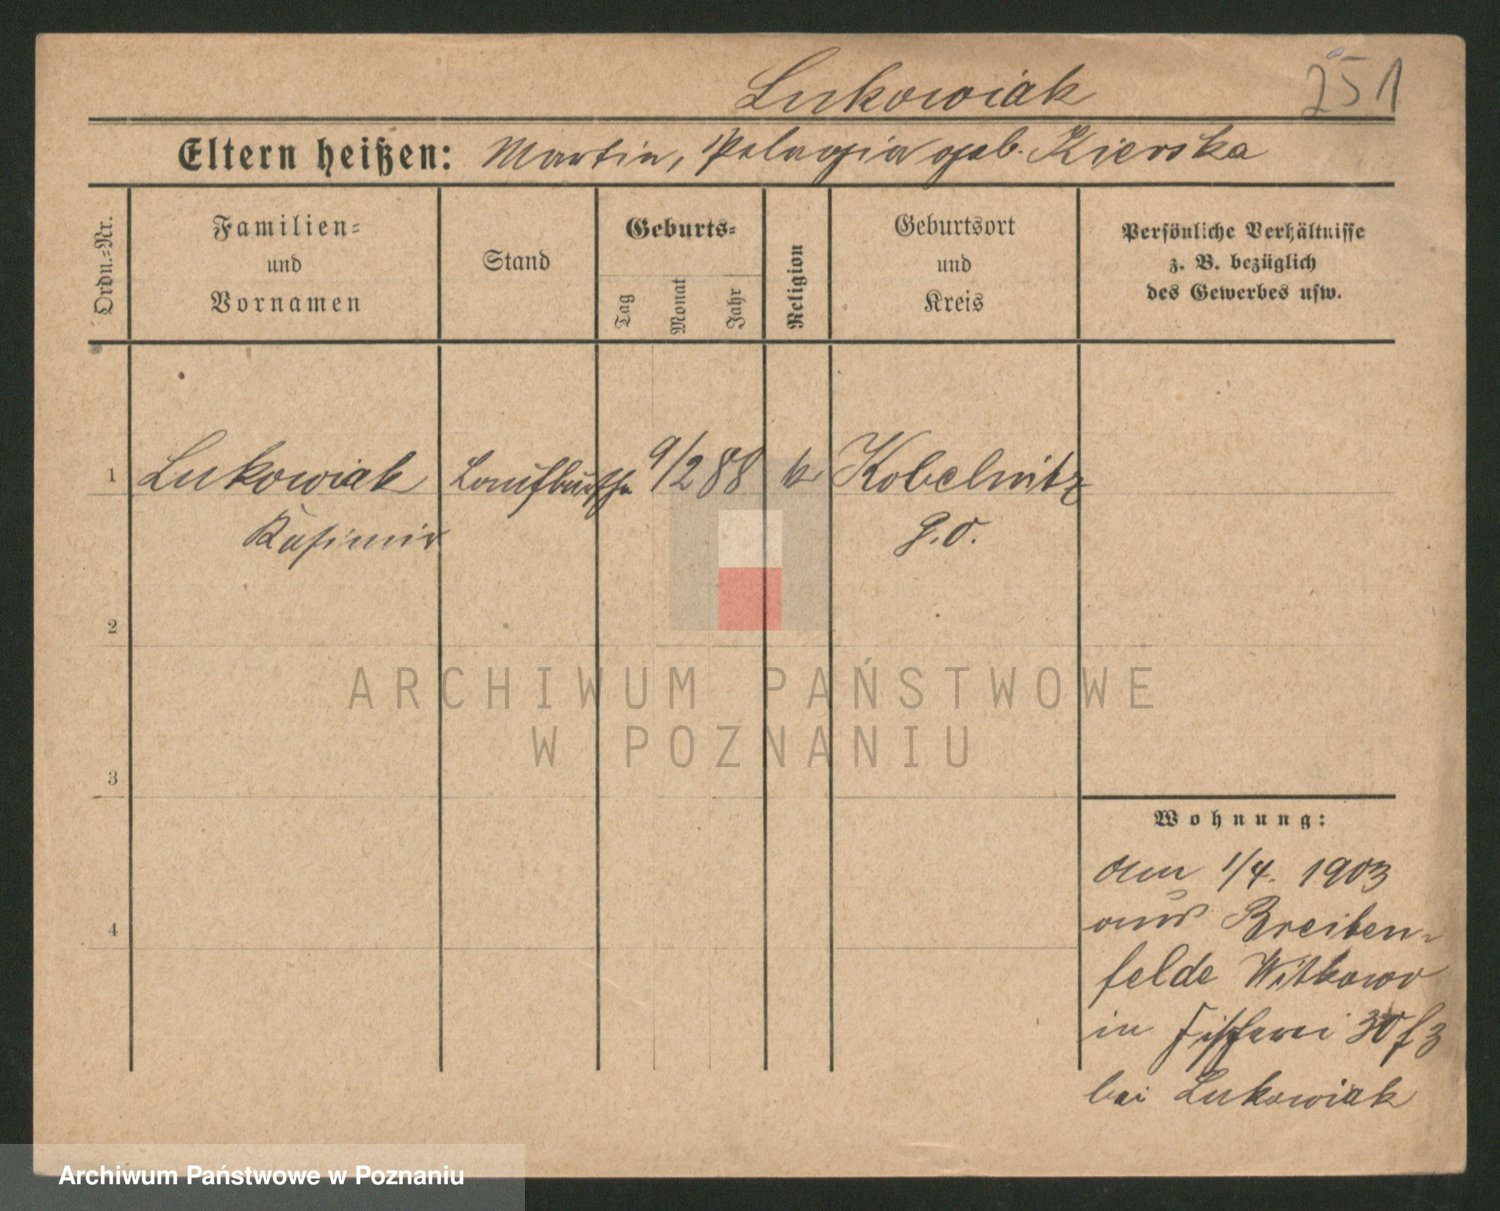 Lukowiak
251
Eltern heißen: Martin, Pelagia geb. Kierska
Ordn.-Nr.
Familien-
und
Vornamen
Stand
Geburts-
Tag
Monat
Jahr
Religion
Geburtsort
und
Kreis
Persönliche Verhältnisse
z. B. bezüglich
des Gewerbes usw.
1 Lukowiak Laufbursche 9/2 88 k Kobelnitz
Kasimir P.O.
2
3
4
Wohnung:
Am 1/4. 1903
aus Breiten-
felde Witkowo
in Fischerei 30
bei Lukowiak
ARCHIWUM PAŃSTWOWE
W POZNANIU
Archiwum Państwowe w Poznaniu